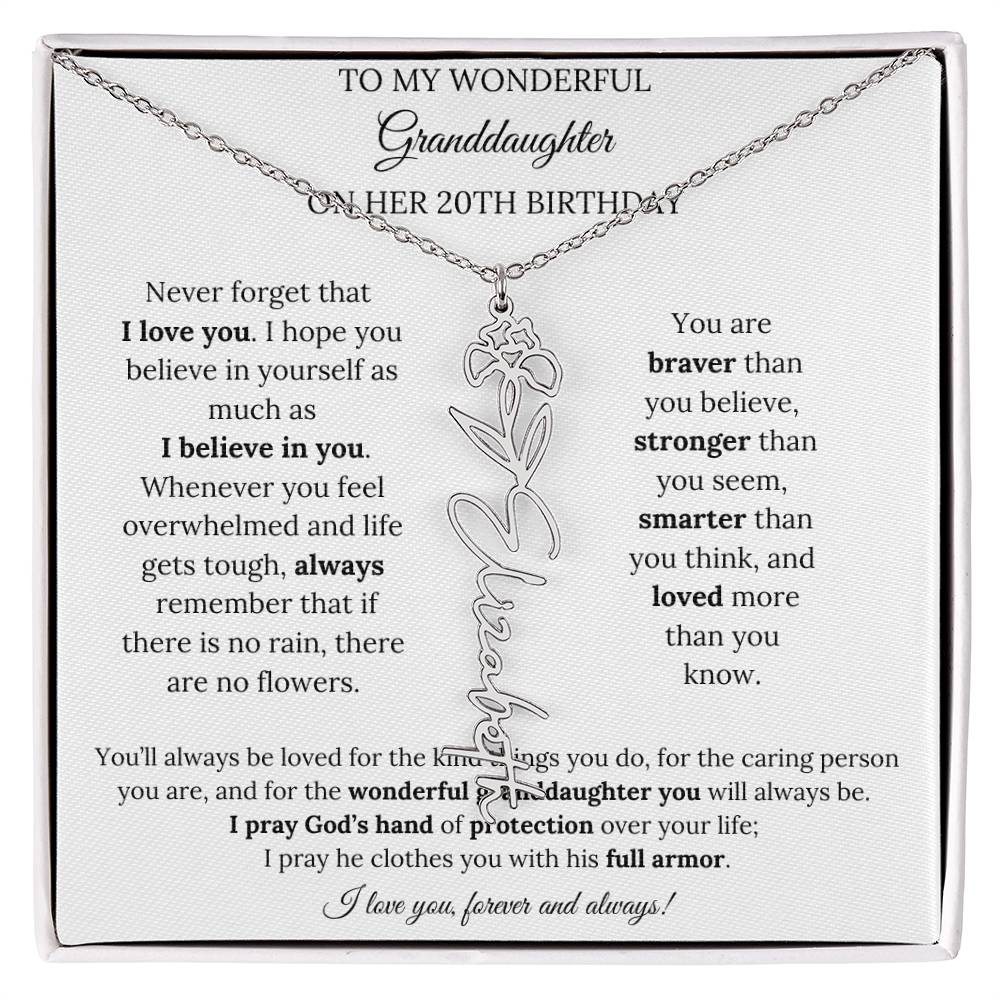 TO MY WONDERFUL
Granddaughter
ON HER 20TH BIRTHDAY
Never forget that
I love you. I hope you
believe in yourself as
much as
I believe in you.
Whenever you feel
overwhelmed and life
gets tough, always
remember that if
there is no rain, there
are no flowers.
Elizabeth
You are
braver than
you believe,
stronger than
you seem,
smarter than
you think, and
loved more
than you
know.
You'll always be loved for the kind things you do, for the caring person
you are, and for the wonderful granddaughter you will always be.
I pray God's hand of protection over your life;
I pray he clothes you with his full armor.
I love you, forever and always!